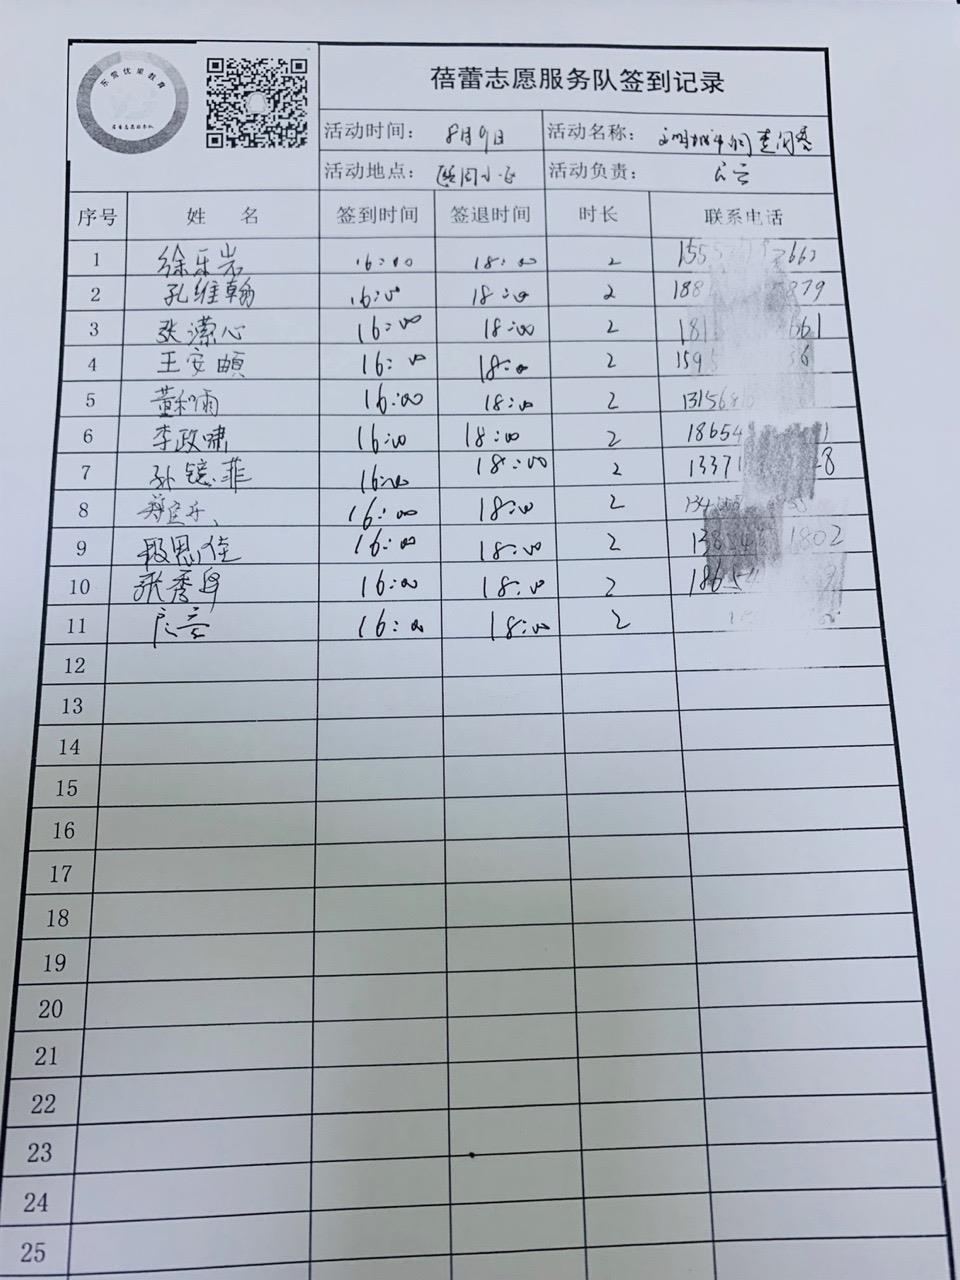 东营优果教育
蓓蕾志愿服务队签到记录
活动时间: 8月9日 活动名称: 文明城市问卷
活动地点: 活动负责:
序号 姓名 签到时间 签退时间 时长 联系电话
1 徐乐岩 16:00 18:00 2
2 孔维翰 16:00 18:00 2 188 879
3 张潆心 16:00 18:00 2 181 661
4 王安頔 16:00 18:00 2 159
5 董和雨 16:00 18:00 2 13156
6 李政啸 16:00 18:00 2 18654
7 孙镱菲 16:00 18:00 2 1337 8
8 16:00 18:00 2
9 段思佳 16:00 18:00 2 138 1802
10 张秀娟 16:00 18:00 2 18654
11 16:00 18:00 2
12
13
14
15
16
17
18
19
20
21
22
23
24
25